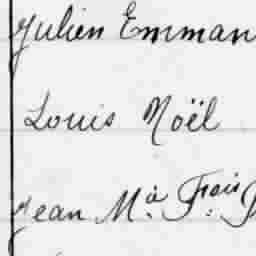 Julien Emman
Louis Noël
Jean Mª Fçois